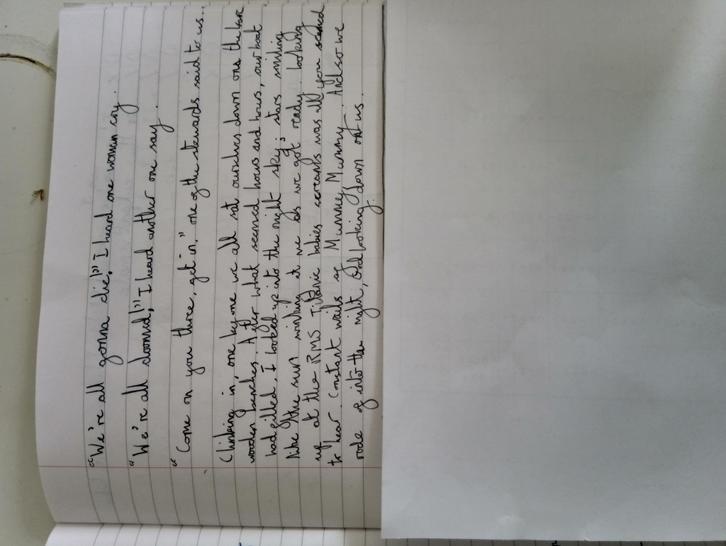 "We're all gonna die!" I heard one women cry.
"We're all doomed!" I heard another one say.
"Come on you three, get in." one of the stewards said to us..
Climbing in, one by one we all sat ourselves down one the bare
wooden benches. After what seemed hours and hours, our boat
had filled. I looked up into the night sky; stars smiling
like the sun smiling at me as we got ready. looking
up at the RMS Titanic babies screams was all you seemed
to hear. Constant wails of Mummy, Mummy. And so we
rode of into the night, God looking down on us.